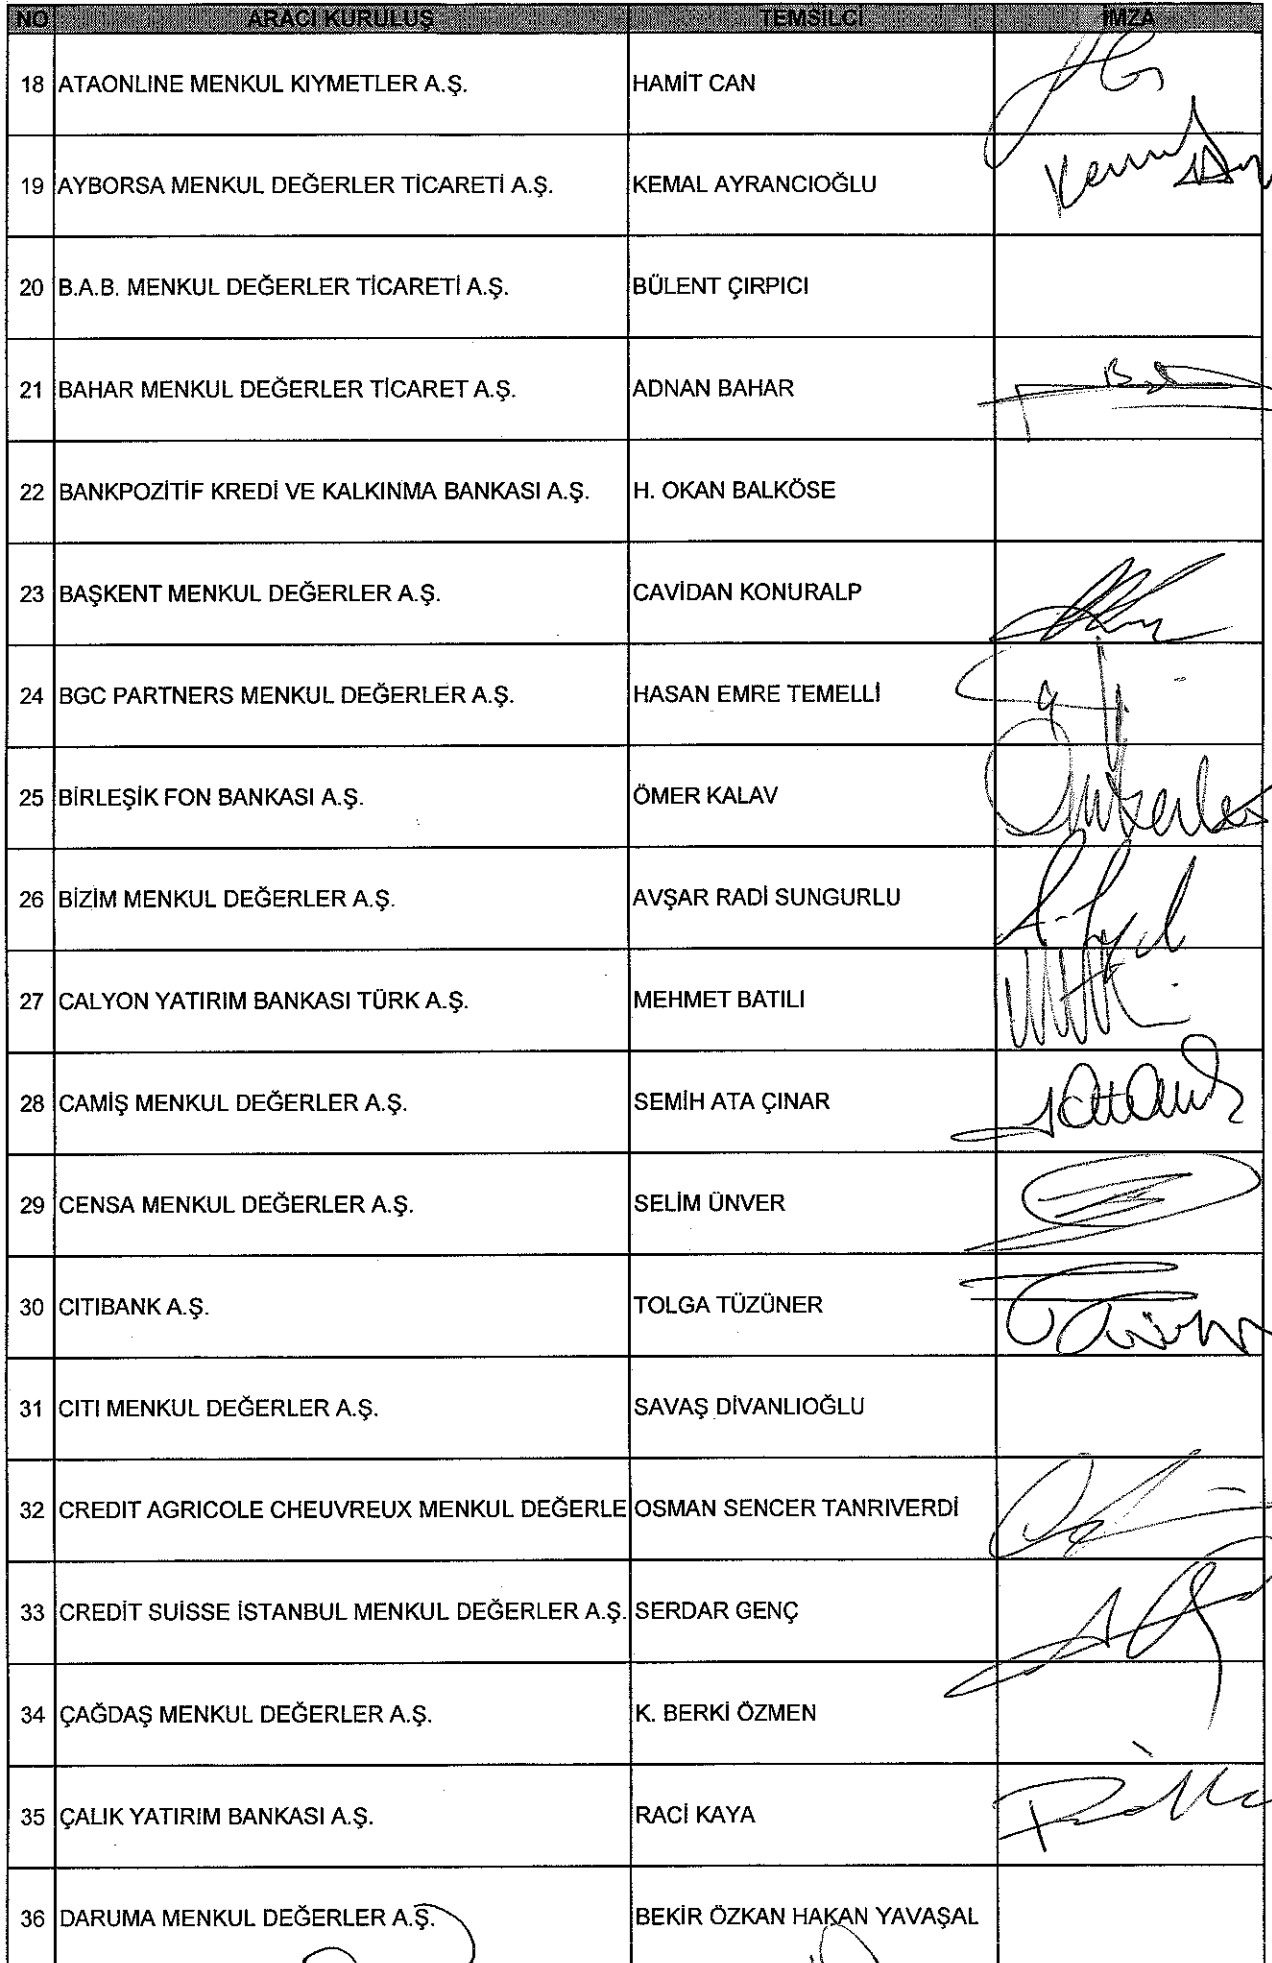 NO ARACI KURULUŞ TEMSİLCİ İMZA
18 ATAONLINE MENKUL KIYMETLER A.Ş. HAMİT CAN
19 AYBORSA MENKUL DEĞERLER TİCARETİ A.Ş. KEMAL AYRANCIOĞLU
20 B.A.B. MENKUL DEĞERLER TİCARETİ A.Ş. BÜLENT ÇIRPICI
21 BAHAR MENKUL DEĞERLER TİCARET A.Ş. ADNAN BAHAR
22 BANKPOZİTİF KREDİ VE KALKINMA BANKASI A.Ş. H. OKAN BALKÖSE
23 BAŞKENT MENKUL DEĞERLER A.Ş. CAVİDAN KONURALP
24 BGC PARTNERS MENKUL DEĞERLER A.Ş. HASAN EMRE TEMELLİ
25 BİRLEŞİK FON BANKASI A.Ş. ÖMER KALAV
26 BİZİM MENKUL DEĞERLER A.Ş. AVŞAR RADİ SUNGURLU
27 CALYON YATIRIM BANKASI TÜRK A.Ş. MEHMET BATILI
28 CAMİŞ MENKUL DEĞERLER A.Ş. SEMİH ATA ÇINAR
29 CENSA MENKUL DEĞERLER A.Ş. SELİM ÜNVER
30 CITIBANK A.Ş. TOLGA TÜZÜNER
31 CITI MENKUL DEĞERLER A.Ş. SAVAŞ DİVANLIOĞLU
32 CREDIT AGRICOLE CHEUVREUX MENKUL DEĞERLE OSMAN SENCER TANRIVERDİ
33 CREDİT SUİSSE İSTANBUL MENKUL DEĞERLER A.Ş. SERDAR GENÇ
34 ÇAĞDAŞ MENKUL DEĞERLER A.Ş. K. BERKİ ÖZMEN
35 ÇALIK YATIRIM BANKASI A.Ş. RACİ KAYA
36 DARUMA MENKUL DEĞERLER A.Ş. BEKİR ÖZKAN HAKAN YAVAŞAL